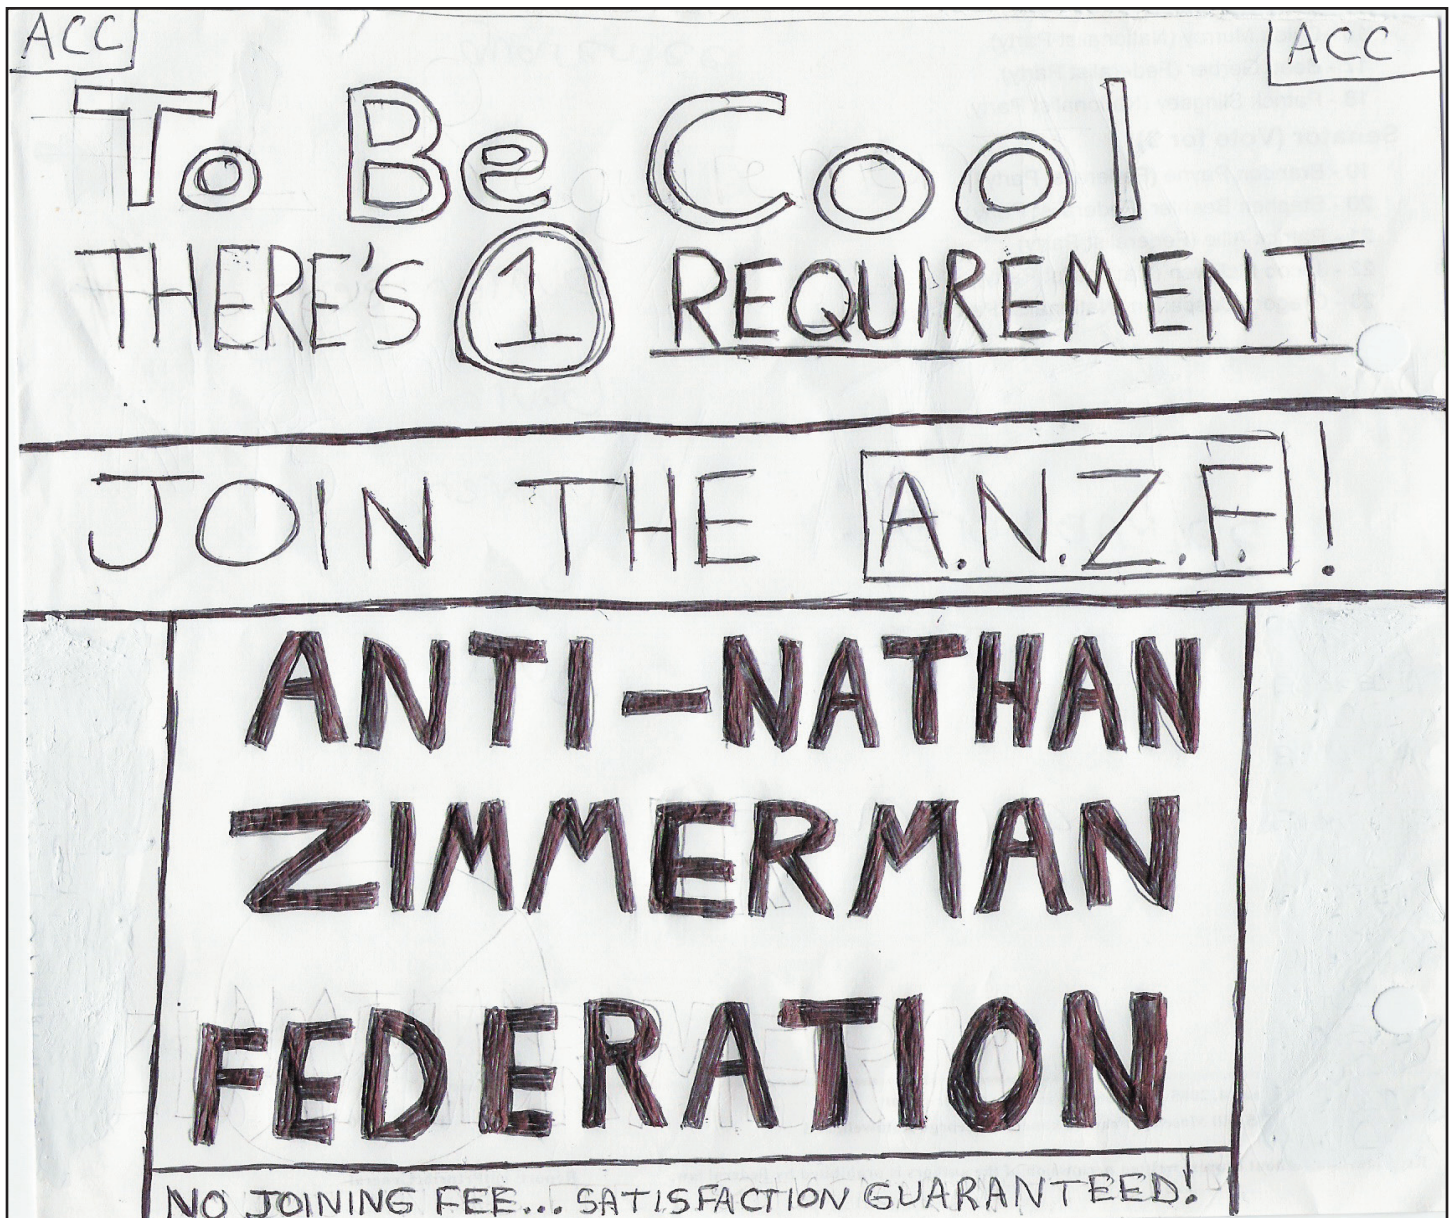 ACC ACC
To Be Cool
THERE'S 1 REQUIREMENT
JOIN THE A.N.Z.F.!
ANTI-NATHAN
ZIMMERMAN
FEDERATION
NO JOINING FEE... SATISFACTION GUARANTEED!